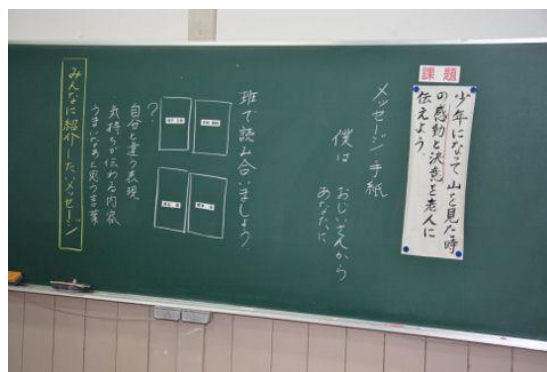 課題
少年になって山を見た時
の感動と決意を老人に
伝えよう
メッセージ手紙
僕は
おじいさんから
あなたに
班で読み合いましょう
?
自分と違う表現
気持ちが伝わる内容
うまいなあと思う言葉
みんなに紹介したいメッセージ